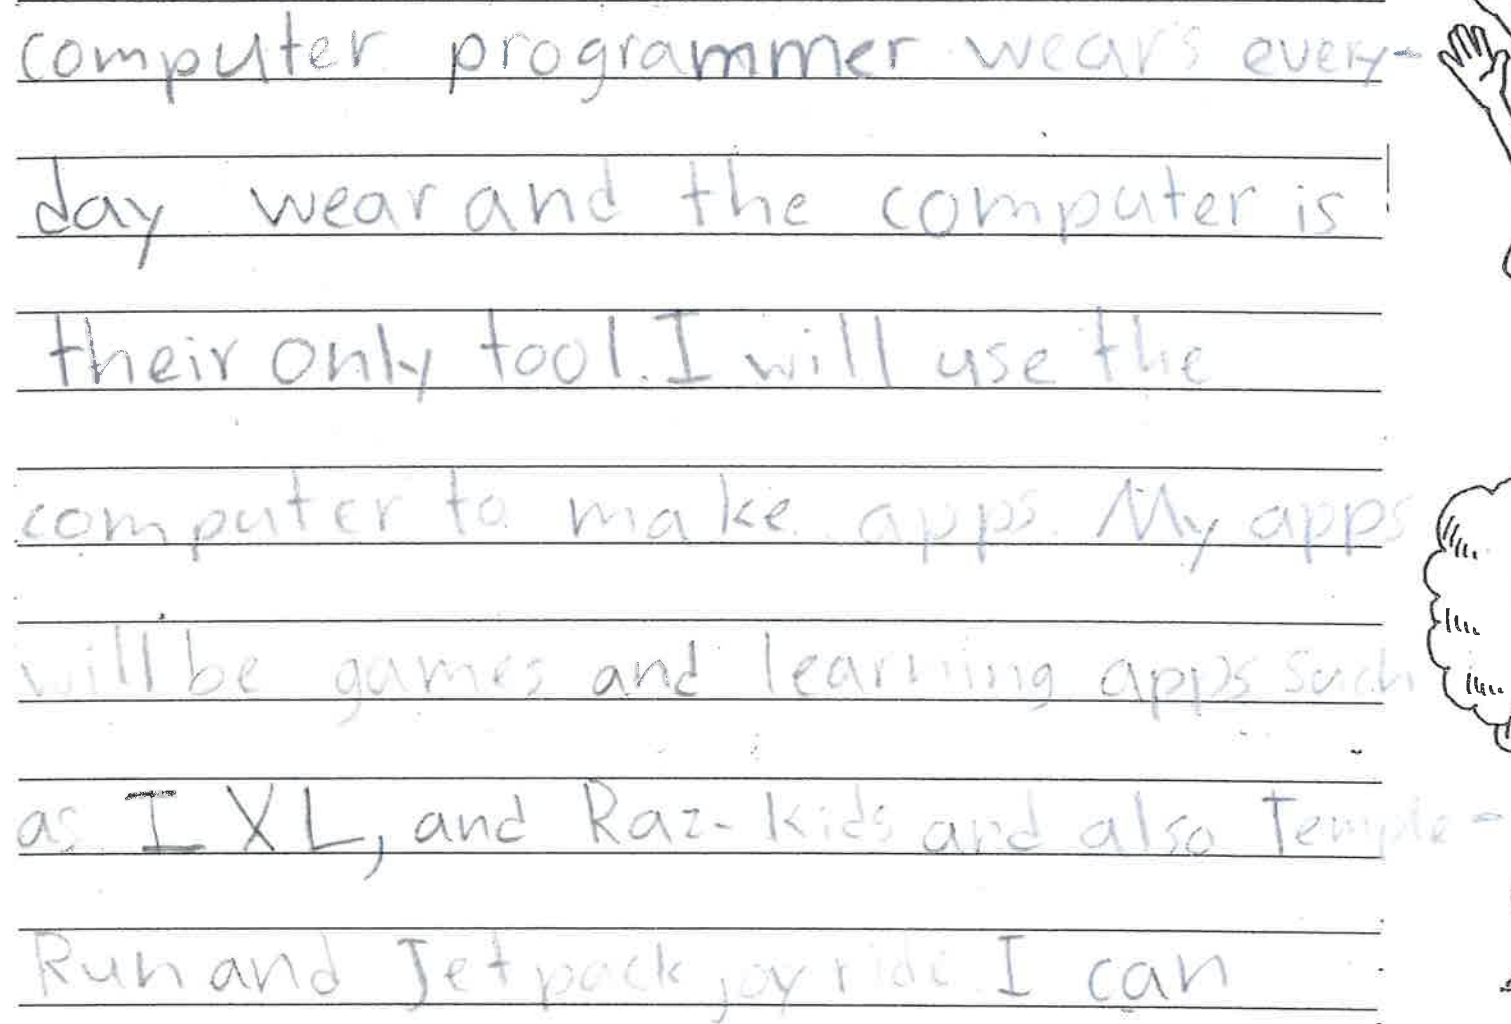 computer programmer wears every-
day wear and the computer is
their only tool. I will use the
computer to make apps. My apps
will be games and learning apps such
as IXL, and Raz-kids and also Temple-
Run and Jetpack joyride. I can